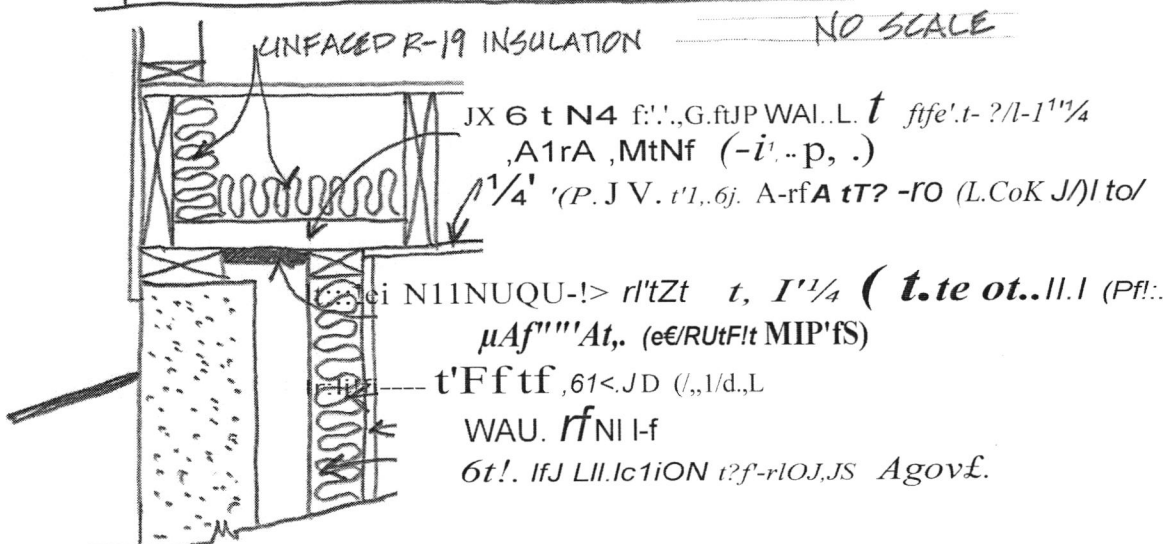 NO SCALE
UNFACED R-19 INSULATION
JX 6 t N4 f:'.'.,G.ftJP WAI..L. t ftfe'.t- ?/l-1¹'¹/¼
,A1rA ,MtNf (-i'..p, .)
¼' '(P. J V. t'1,.6j. A-rfA tT? -ro (L.CoK J/)l to/
N11NUQU-!> rl'tZt t, I'¼ ( t.te ot..ll.l (Pf!:.
µAf"""'At,. (e€/RUtF!t MIP'fS)
t'Fftf ,61<.JD (/,,1/d.,L
WAU. rfNI l-f
6t!. IfJ LII.Ic1iON t?f'-rlOJ,JS Agov£.